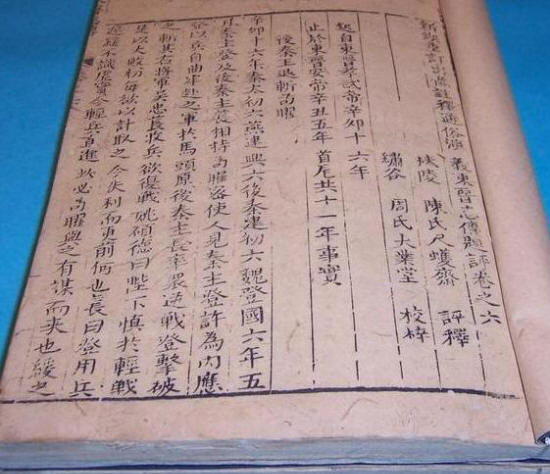 新鐫重訂出像註釋通俗演義東晉志傳題評卷之六
秣陵 陳氏尺蠖齋 評釋
繡谷 周氏大業堂 校梓
起自東晉孝武帝辛卯十六年
止於東晉安帝辛丑五年 首尾共十一年事實
後秦主斬苟曜
辛卯十六年秦太初六燕建興六後秦建初六魏登國六年五
月秦主登及後秦主萇相持苟曜密使人見秦主登許為內應
登以兵自曲牢赴之軍於馬頭原後秦主萇率眾逆戰登擊破
之斬其右將軍吳忠萇收兵欲復戰姚碩德曰陛下慎於輕戰
是以大敗每欲以計取之今失利而更前何也萇曰登用兵
遲緩不識虛實今輕兵直進此必苟曜與之有謀而來也緩之